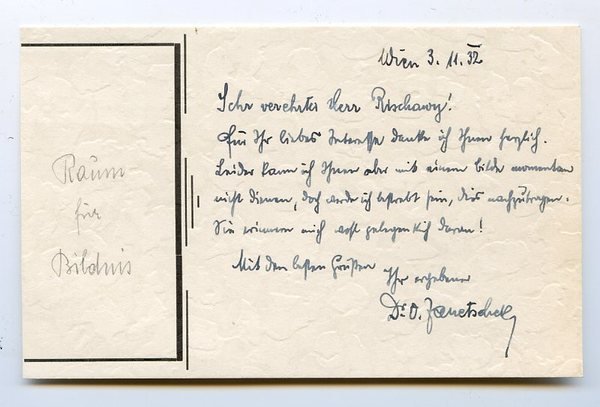 Raum
für
Bildnis
Wien 3. 11. 32
Sehr verehrter Herr Rischawy!
Für Ihr liebes Interesse danke ich Ihnen herzlich.
Leider kann ich Ihnen aber mit einem bilde momentan
nicht dienen, doch werde ich bestrebt sein, dies nachzutragen.
Sie erinnern mich wohl gelegentlich daran!
Mit den besten Grüßen
Ihr ergebener
Dr. O. Janetschek